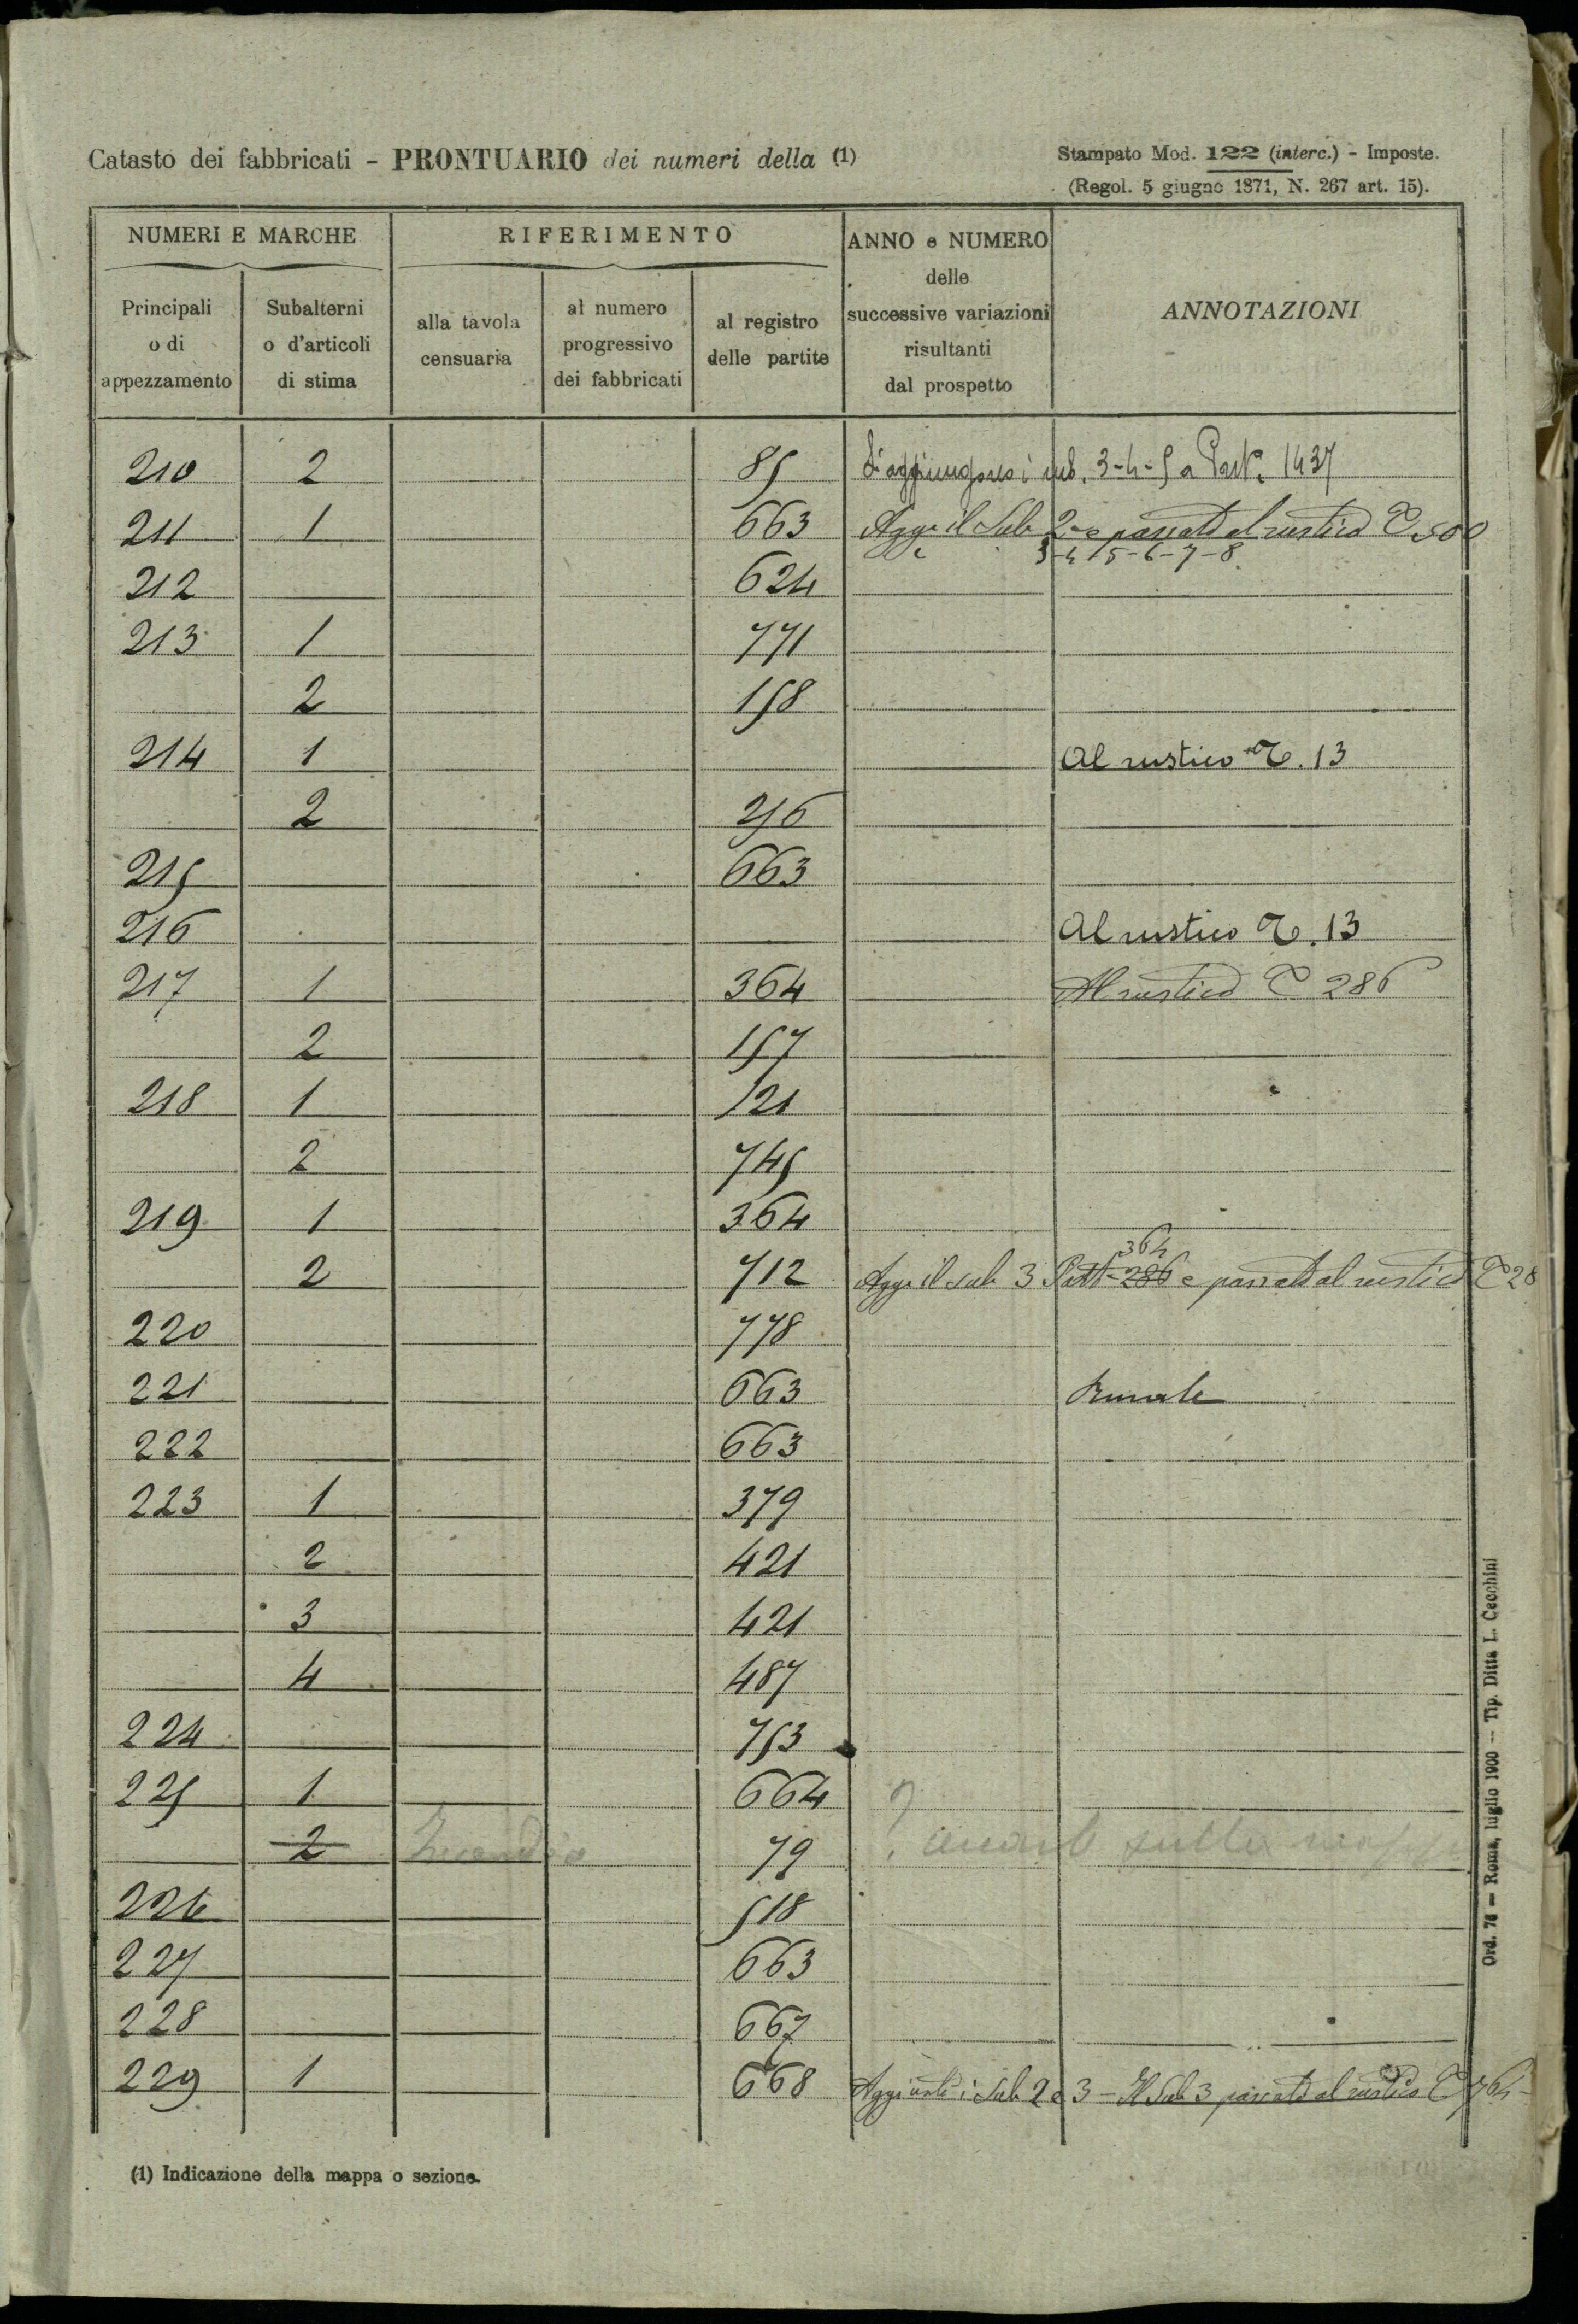 Catasto dei fabbricati - PRONTUARIO dei numeri della (1)
Stampato Mod. 122 (interc.) - Imposte.
(Regol. 5 giugno 1871, N. 267 art. 15).
NUMERI E MARCHE
Principali o di appezzamento
Subalterni o d'articoli di stima
RIFERIMENTO
alla tavola censuaria
al numero progressivo dei fabbricati
al registro delle partite
ANNO e NUMERO delle successive variazioni risultanti dal prospetto
ANNOTAZIONI
210 2 85 S'aggiungono i sub. 3-4-5 a Part. 1437
211 1 663 Agg. il Sub 2 e passato al rustico 500
3-4-5-6-7-8
212 624
213 1 771
2 158
214 1 Al rustico 13
2 256
215 663
216 Al rustico 13
217 1 364 Al rustico 286
2 157
218 1 121
2 745
219 1 364
364
2 712 Agg. il sub 3 Part. 286 e passato al rustico 28
220 778
221 663 Rurale
222 663
223 1 379
2 421
3 421
4 487
224 753
225 1 664 ?
2 79 sulla mappa
226 518
227 663
228 667
229 1 668 Aggiunti i Sub 2 e 3 - Il Sub 3 passato al rustico 764
(1) Indicazione della mappa o sezione.
Ord. 76 - Roma, luglio 1900 - Tip. Ditta L. Cecchini